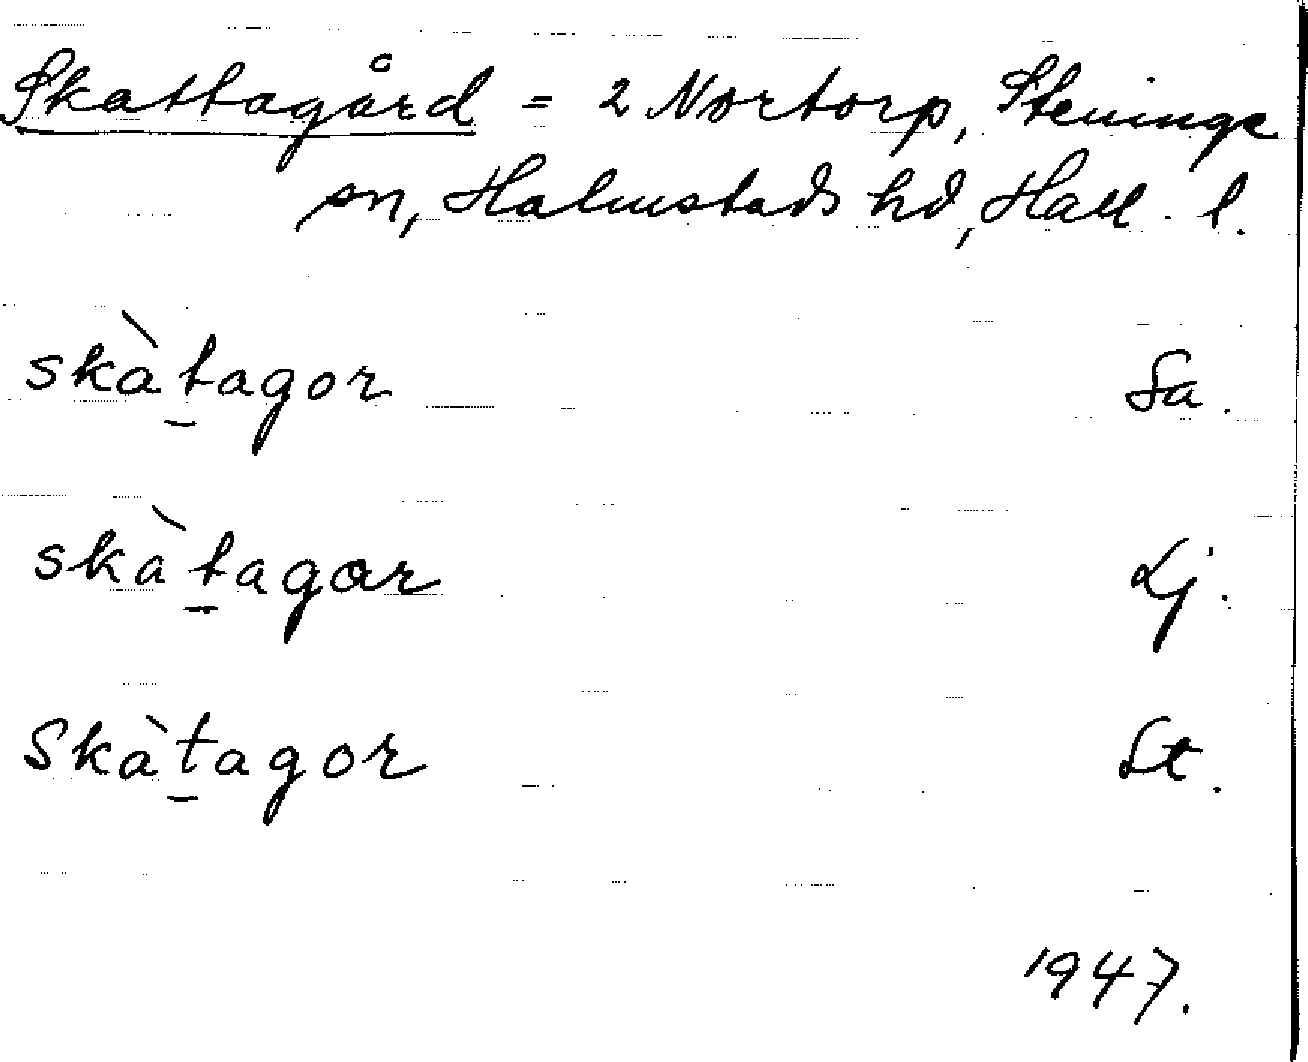 Skattagård = 2 Nortorp, Steninge
sn, Halmstads hd, Hall. l.
skàt̠agor Sa.
skàt̠agɑr Lj.
Skàt̠agor St.
1947.